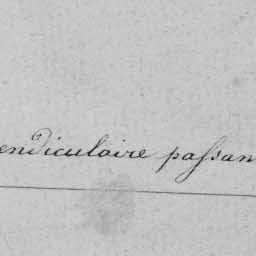 endiculaire passan